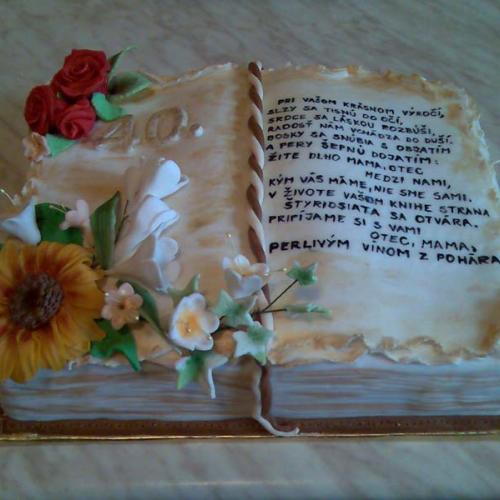 40.
PRI VAŠOM KRÁSNOM VÝROČÍ,
SLZY SA TISNÚ DO OČÍ,
SRDCE SA LÁSKOU ROZBÚŠI,
RADOSŤ NÁM VCHÁDZA DO DUŠÍ.
BOSKY SA SNÚBIA S OBJATÍM
A PERY ŠEPNÚ DOJATÍM:
ŽITE DLHO MAMA, OTEC
MEDZI NAMI,
KÝM VÁS MÁME, NIE SME SAMI.
V ŽIVOTE VAŠOM KNIHE STRANA
ŠTYRIDSIATA SA OTVÁRA.
PRIPÍJAME SI S VAMI
OTEC, MAMA,
PERLIVÝM VÍNOM Z POHÁRA